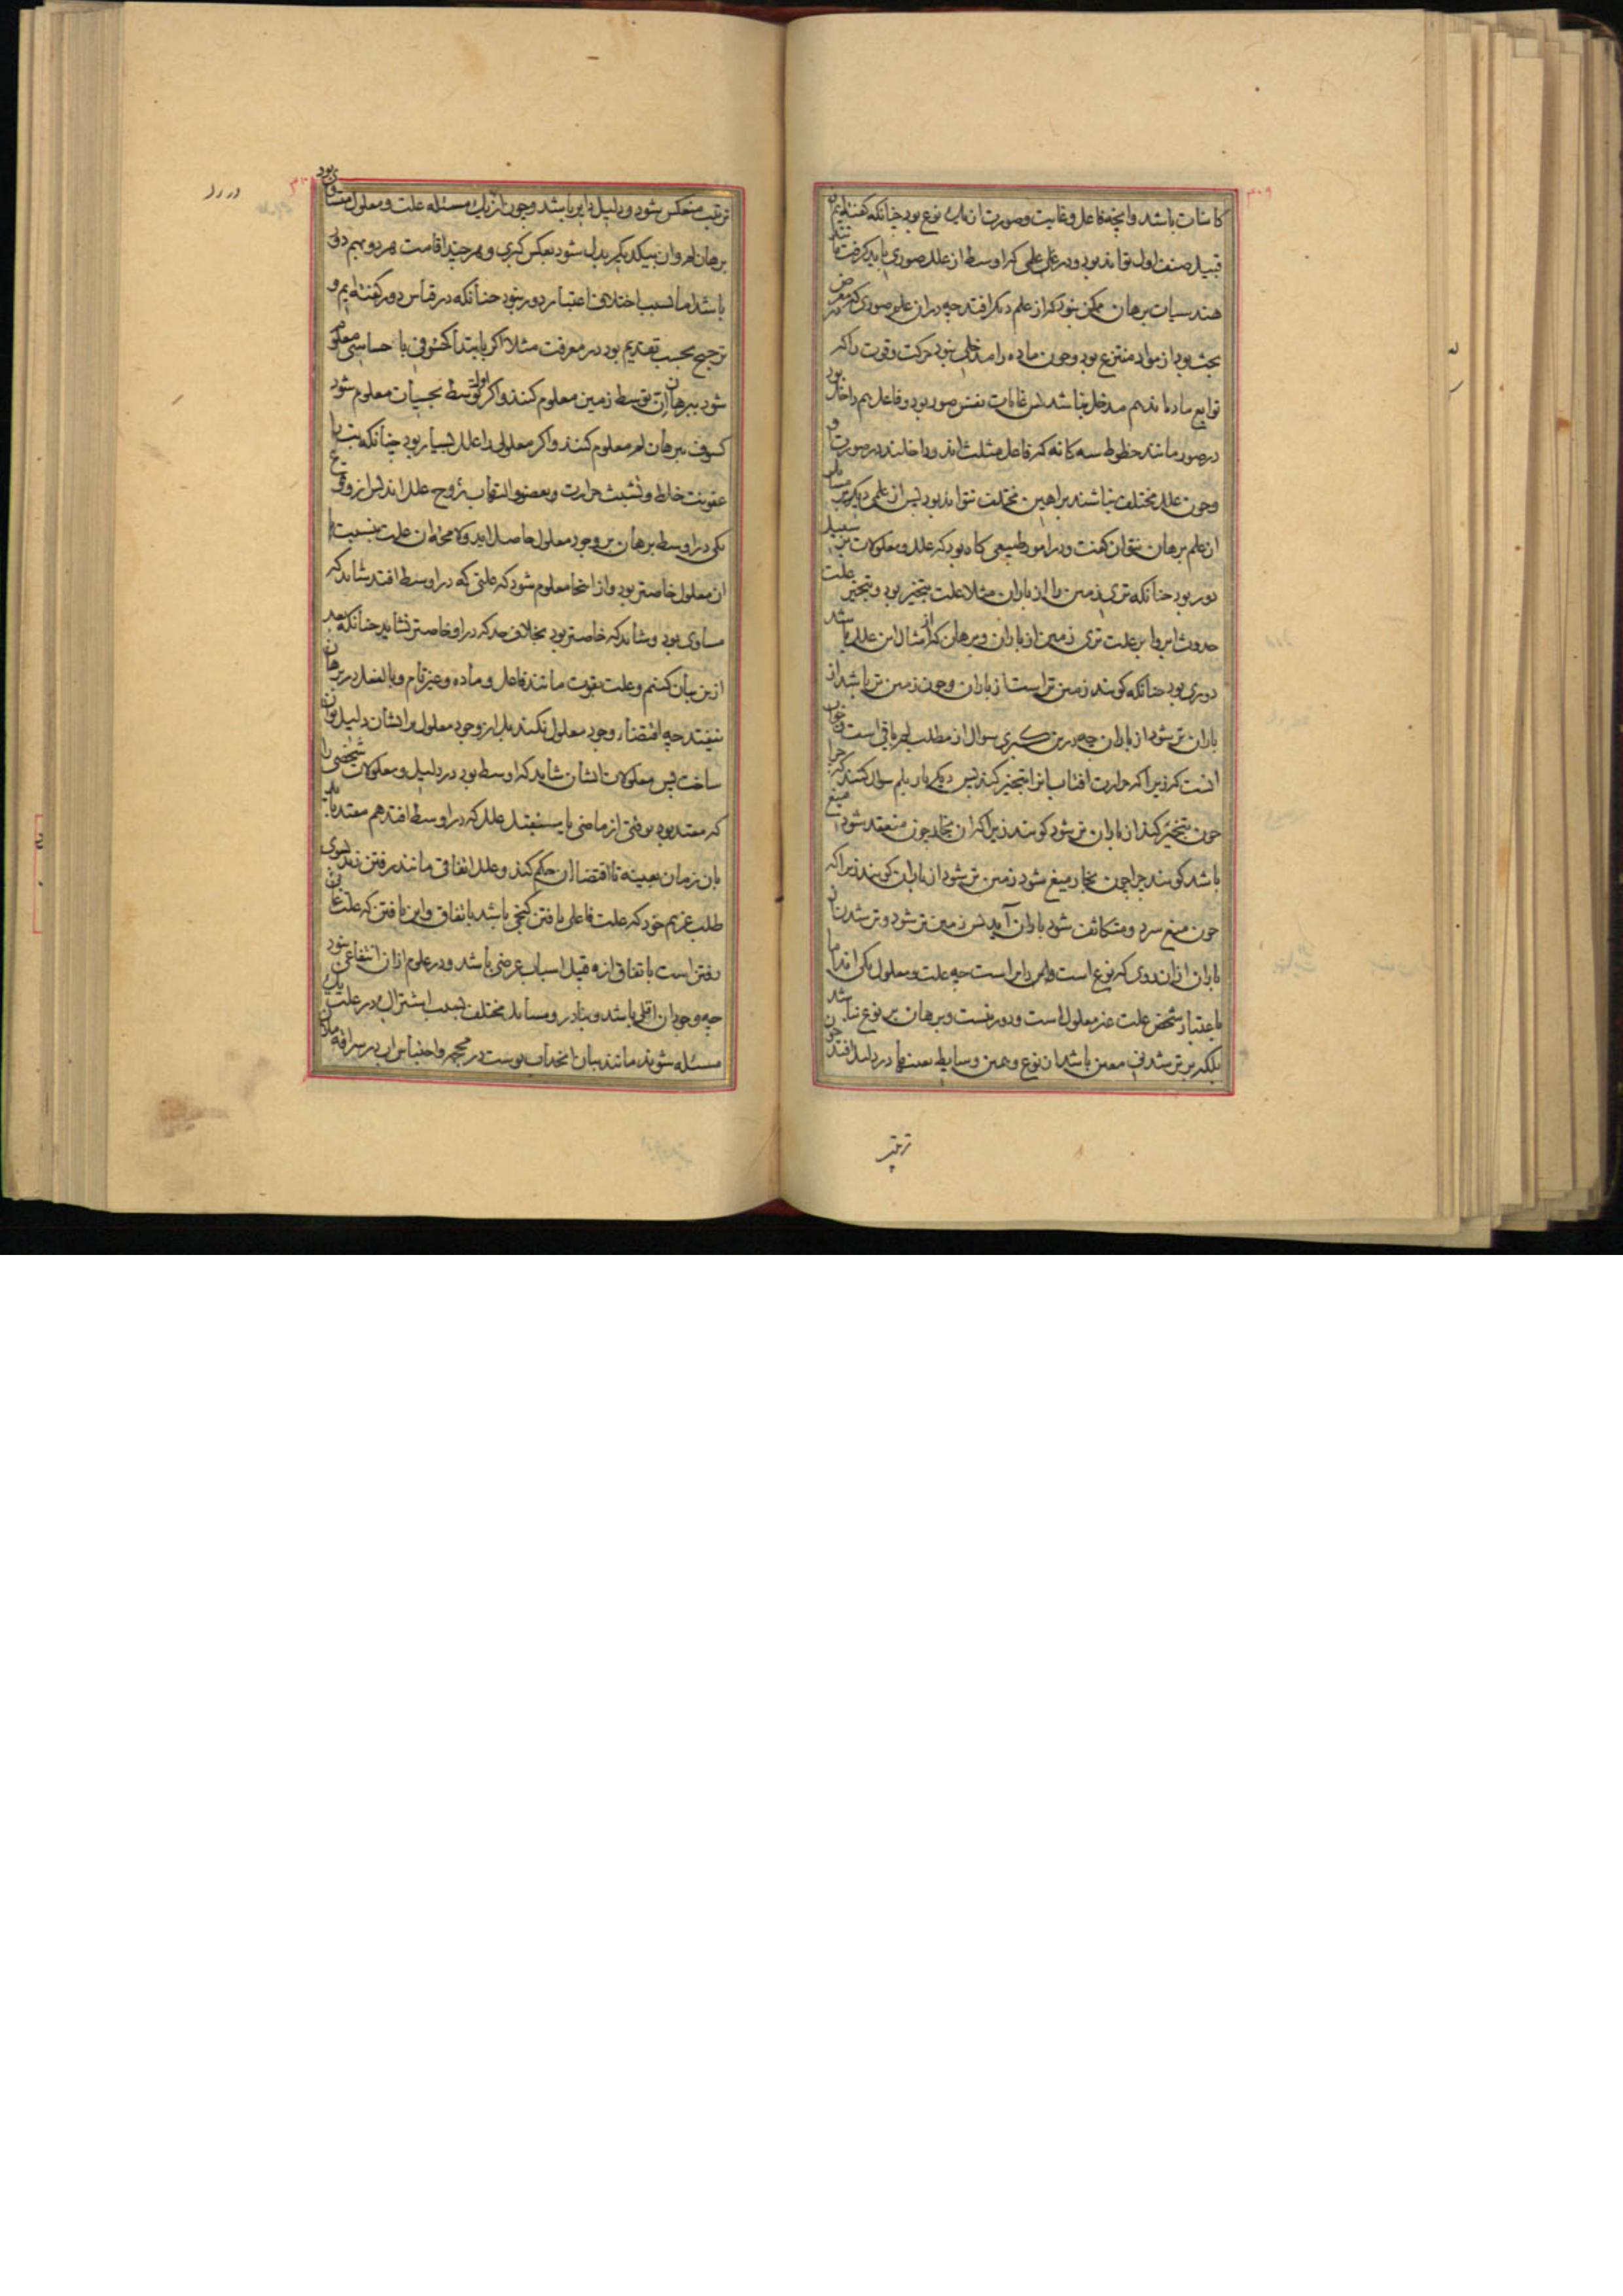 ۳۰۹
کاینات باشد و آنچه فاعل و غایت و صورت آن یک نوع بود چنانکه گفته‌ایم از
قبیل صنف اول تواند بود و در علمی که اوسط از علل صوری باید گرفت مانند
هندسیات برهان ممکن نبود که از علم دیگر افتد چه در آن علم صوری که معرض
بحث بود از مواد منتزع بود و چون ماده را مدخلی نبود حرکت و قوت را که
توابع ماده‌اند هم مدخل نباشد پس غایات نفس صور بود و فاعل هم داخل بود
در صور مانند خطوط سه‌گانه که فاعل مثلث‌اند و داخلند در صورت او
و چون علل مختلف نباشند براهین مختلف نتواند بود پس از علمی دیگر بر مسایل
آن علم برهان نتوان گفت و در امور طبیعی گاه بود که علل و معلولات بر سبیل
دور بود چنانکه تری زمین را از باران مثلا علت تبخیر بود و تبخیر علت
حدوث ابر و ابر علت تری زمین از باران و برهان که از امثال این علل باشد
دوری بود چنانکه گویند زمین تر است از باران و چون زمین تر باشد از
باران تر شود از باران چه درین کبری سوال از مطلب لم باقی است و جواب
آنست که زیرا که حرارت آفتاب آنرا تبخیر کند پس دیگر بار بلم سوال کنند که چرا
چون تبخیر کند از باران تر شود گویند زیرا که آن بخار چون منعقد شود میغ
باشد گویند چرا چون بخار میغ شود زمین تر شود از باران گویند زیرا که
چون میغ سرد و متکاثف شود باران آید پس زمین تر شود و تر شدن از
باران از آن روی که نوع است دایر است چه علت و معلول یکی‌اند اما
باعتبار شخص علت غیر معلول است و دور نیست و برهان بر نوع نباشد
بلکه بر تر شدنی معین باشد از نوع و همین وسایط بعینها در دلیل افتد چون
ترتیب
۳۰۸
ترتیب منعکس شود و دلیل دایر باشد و چون از یک مسئله علت و معلول متساوی بود
برهان لم و ان بیکدیگر بدل شود بعکس کبری و هرچند اقامت هر دو بهم دوری
باشد اما بسبب اختلاف اعتبار دور نبود چنانکه در قیاس دور گفته‌ایم و
ترجیح بحسب تقدیم بود در معرفت مثلا اگر بابتدا کسوفی باحساس معلوم
شود ببرهان ان توسط زمین معلوم کنند و اگر اولا توسط بحسبات معلوم شود
کسوف ببرهان لم معلوم کنند و اگر معلولی را علل بسیار بود چنانکه تب را
عفونت خلط و تشبث حرارت بعضو و التهاب روح علل‌اند پس از وقوع
یکی در اوسط برهان بر وجود معلول حاصل آید و لا محاله آن علت بنسبت با
آن معلول خاصتر بود و از اینجا معلوم شود که علتی که در اوسط افتد شاید که
مساوی بود و شاید که خاصتر بود بخلاف حد که در او خاصتر نشاید چنانکه بعد
ازین بیان کنیم و علت بقوت مانند فاعل و ماده و غیر تام و بالفعل در برهان
نیفتد چه اقتضاء وجود معلول نکند بل از وجود معلول بر ایشان دلیل توان
ساخت پس معلولات ایشان شاید که اوسط بود در دلیل و معلولات شخصی را
که مقید بود بوقتی از ماضی یا مستقبل علل که در اوسط افتد هم مقید باید
بان زمان بعینه تا اقتضاء آن حکم کند و علل اتفاقی مانند رفتن زید بسوی
طلب غریم خود که علت فاعلی یافتن گنجی باشد باتفاق و این یافتن که علت غائی
رفتن است باتفاق از قبیل اسباب عرضی باشد و در علوم از آن انتفاعی نبود
چه وجود آن اقلی باشد و بنادر و مسایل مختلف بسبب اشتراک در علت یک
مسئله شوند مانند بیان انجذاب پوست در محجمه و احتباس آب در سراقه الماء